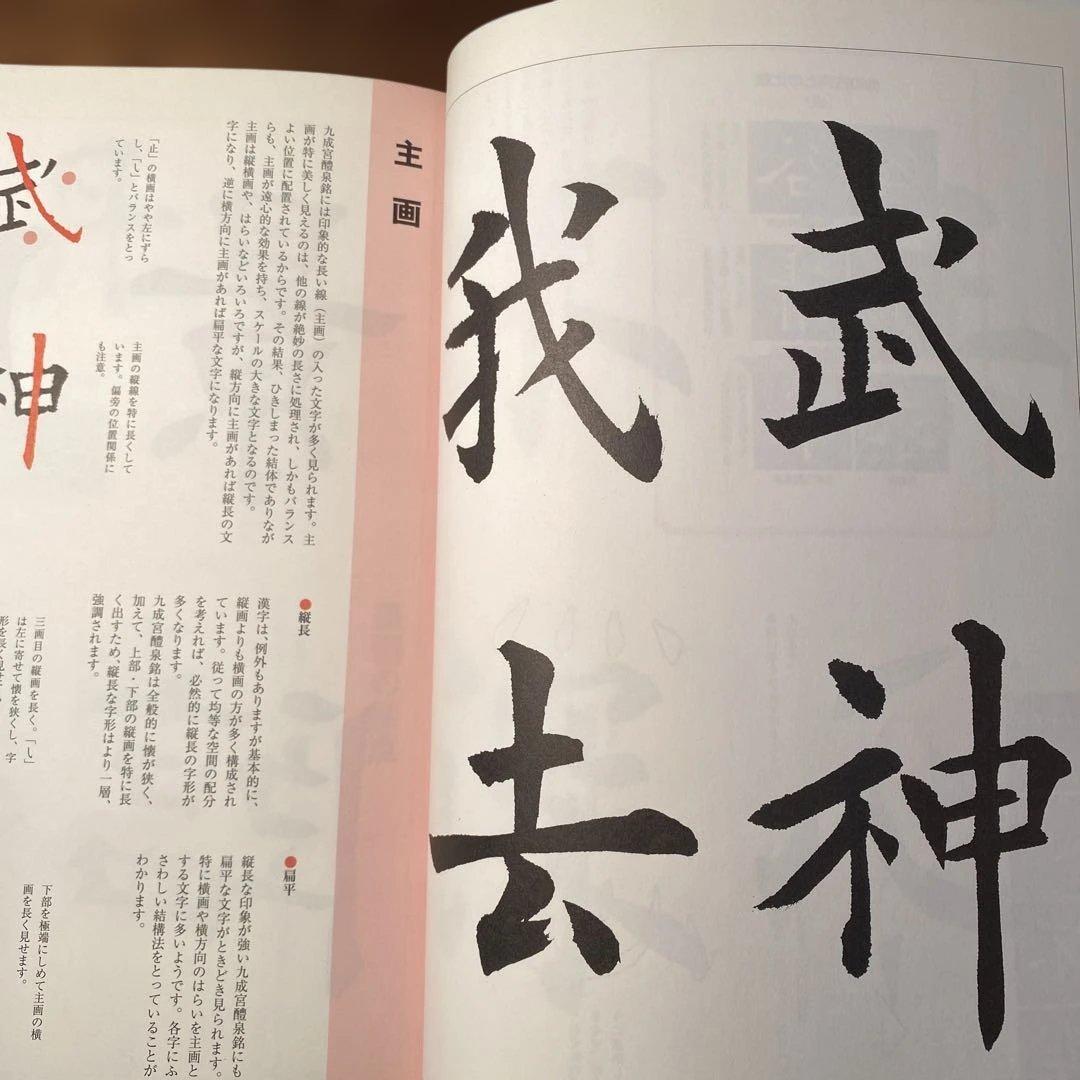 武神
我去
主画
九成宮醴泉銘には印象的な長い線（主画）の入った文字が多く見られます。主
画が特に美しく見えるのは、他の線が絶妙の長さに処理され、しかもバランス
よい位置に配置されているからです。その結果、ひきしまった結体でありなが
らも、主画が遠心的な効果を持ち、スケールの大きな文字となるのです。
主画は縦横画や、はらいなどいろいろですが、縦方向に主画があれば縦長の文
字になり、逆に横方向に主画があれば扁平な文字になります。
●縦長
漢字は、例外もありますが基本的に、
縦画よりも横画の方が多く構成され
ています。従って均等な空間の配分
を考えれば、必然的に縦長の字形が
多くなります。
九成宮醴泉銘は全般的に懐が狭く、
加えて、上部・下部の縦画を特に長
く出すため、縦長な字形はより一層、
強調されます。
●扁平
縦長な印象が強い九成宮醴泉銘にも
扁平な文字がときどき見られます。
特に横画や横方向のはらいを主画と
する文字に多いようです。各字にふ
さわしい結構法をとっていることが
わかります。
「止」の横画はやや左にずら
し、「乀」とバランスをとっ
ています。
主画の縦線を特に長くして
います。偏旁の位置関係に
も注意。
三画目の縦画を長く。「乀」
は左に寄せて懐を狭くし、字
形を長く見せ
下部を極端にしめて主画の横
画を長く見せます。
武
神